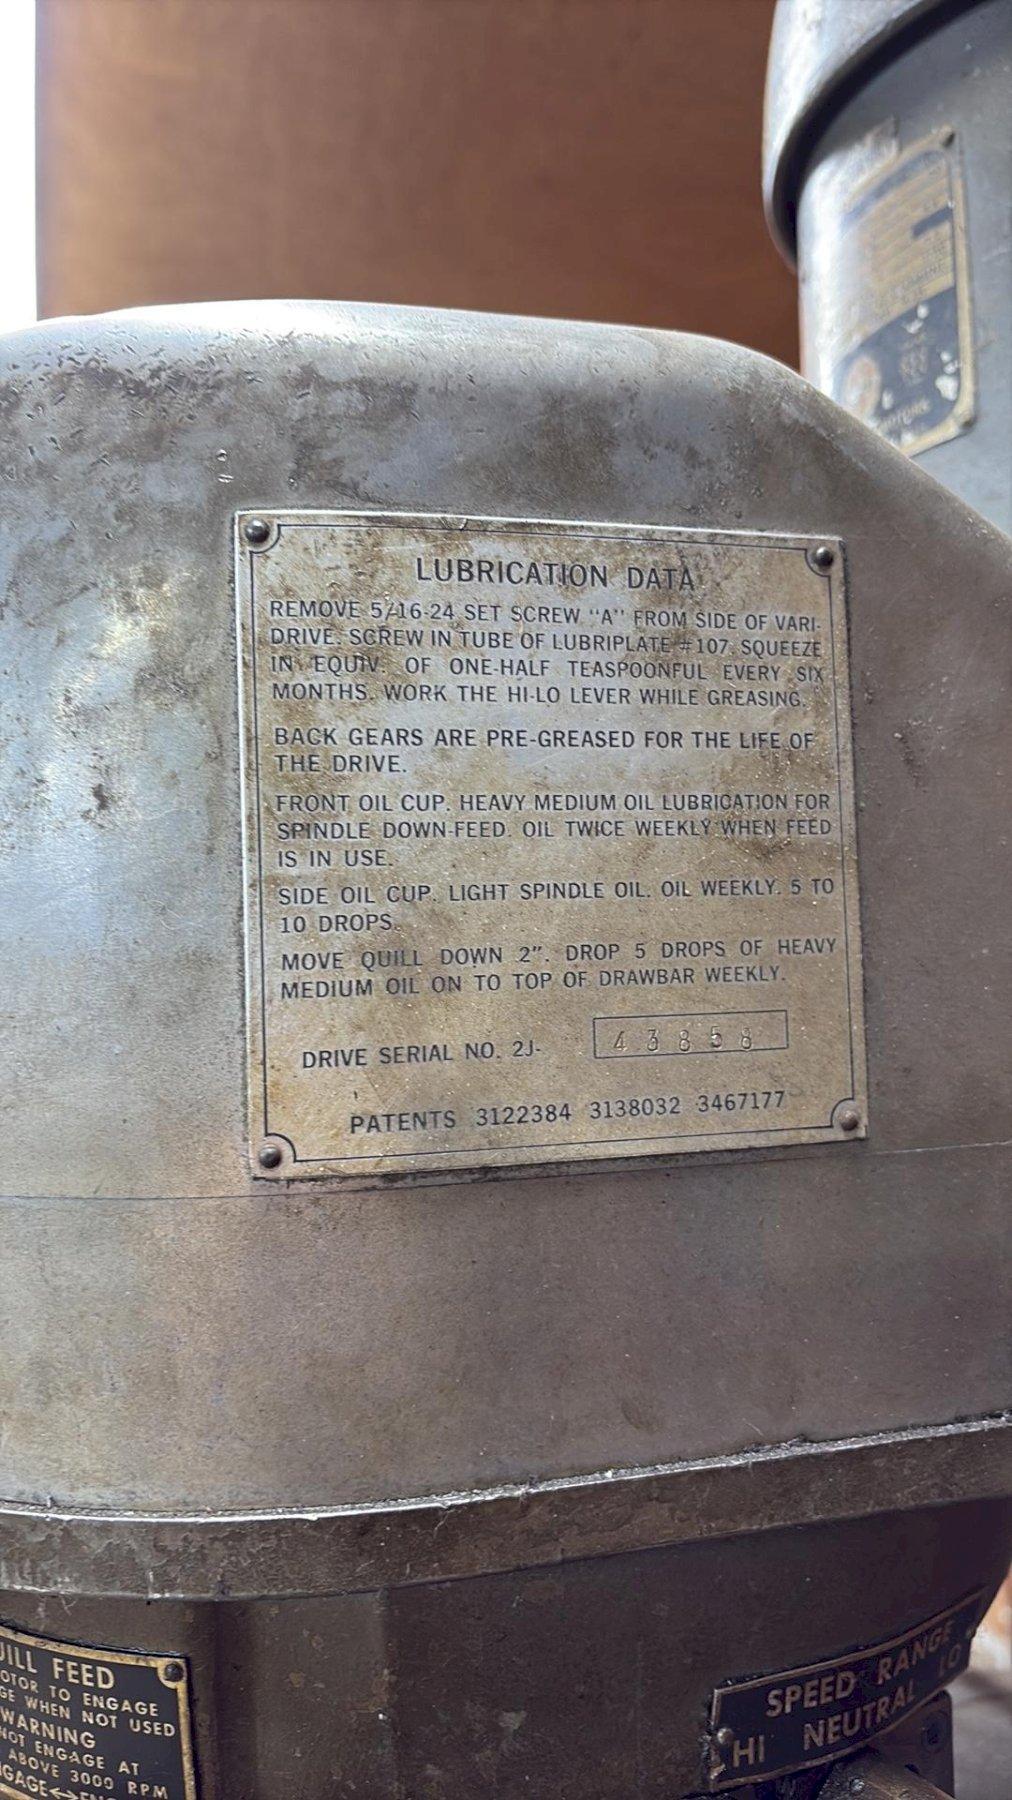 LUBRICATION DATA
REMOVE 5/16-24 SET SCREW "A" FROM SIDE OF VARI-
DRIVE. SCREW IN TUBE OF LUBRIPLATE #107. SQUEEZE
IN EQUIV. OF ONE-HALF TEASPOONFUL EVERY SIX
MONTHS. WORK THE HI-LO LEVER WHILE GREASING.
BACK GEARS ARE PRE-GREASED FOR THE LIFE OF
THE DRIVE.
FRONT OIL CUP. HEAVY MEDIUM OIL LUBRICATION FOR
SPINDLE DOWN-FEED. OIL TWICE WEEKLY WHEN FEED
IS IN USE.
SIDE OIL CUP. LIGHT SPINDLE OIL. OIL WEEKLY. 5 TO
10 DROPS.
MOVE QUILL DOWN 2". DROP 5 DROPS OF HEAVY
MEDIUM OIL ON TO TOP OF DRAWBAR WEEKLY.
DRIVE SERIAL NO. 2J- 43858
PATENTS 3122384 3138032 3467177
FEED
TO ENGAGE
WHEN NOT USED
WARNING
NOT ENGAGE AT
ABOVE 3000 RPM
SPEED RANGE
HI NEUTRAL LO